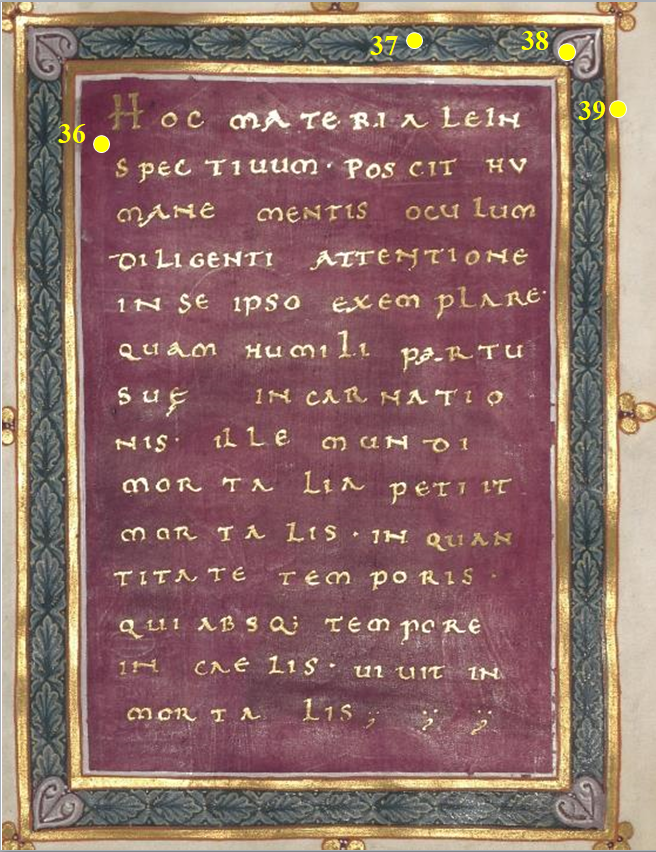 37
38
39
36
HOC MATERIALE IN
SPECTIUUM · POSCIT HV
MANE MENTIS OCULUM
DILIGENTI ATTENTIONE
IN SE IPSO EXEMPLARE ·
QUAM HUMILI PARTU
SUĘ INCARNATIO
NIS · ILLE MUNDI
MORTALIA PETIIT
MORTALIS · IN QUAN
TITATE TEMPORIS ·
QUI ABSQ; TEMPORE
IN CAELIS · UIUIT IN
MORTALIS ;